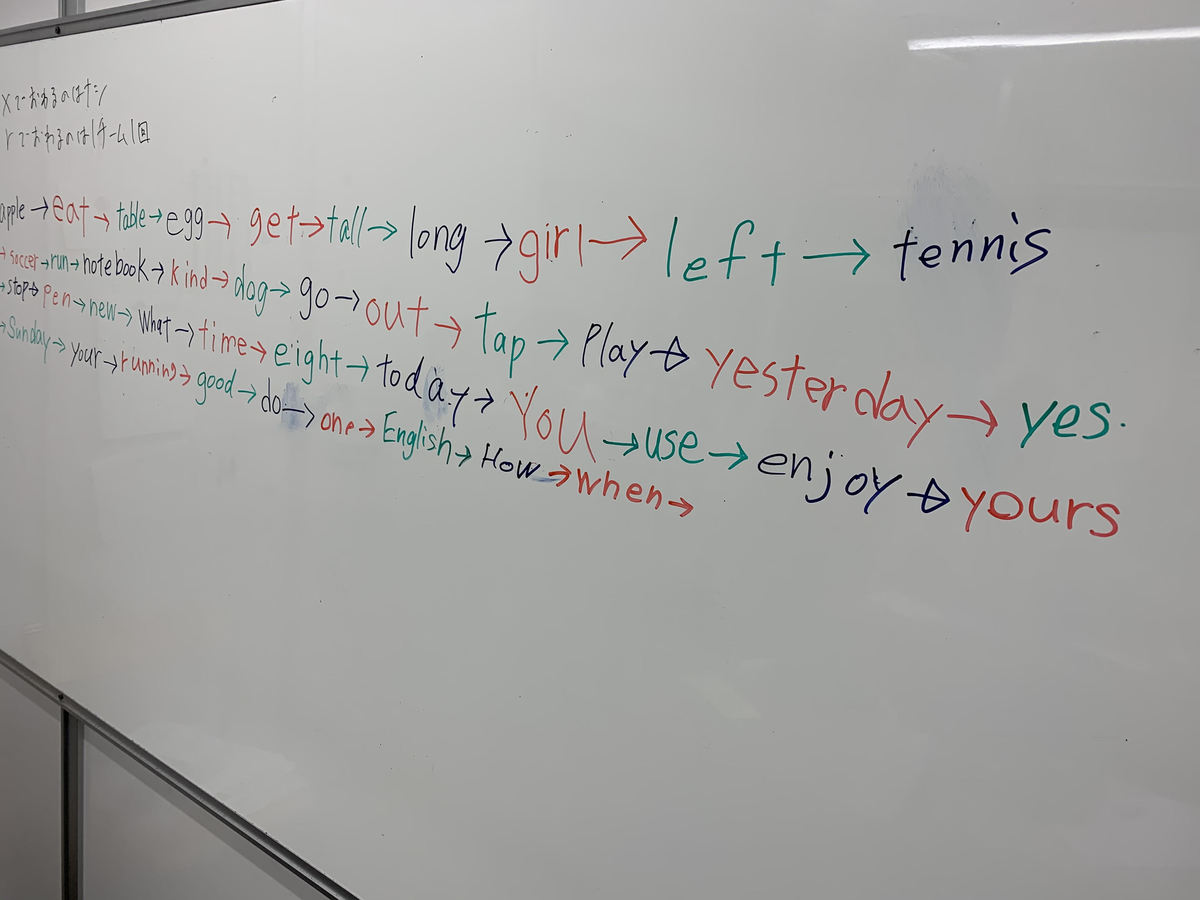 xでおわるのはナシ
rでおわるのは1チーム1回
apple→eat→table→egg→get→tall→long→girl→left→tennis
→soccer→run→notebook→kind→dog→go→out→tap→Play→yesterday→yes.
→stop→pen→new→What→time→eight→today→You→use→enjoy→yours
→Sunday→your→running→good→do→one→English→How→when→